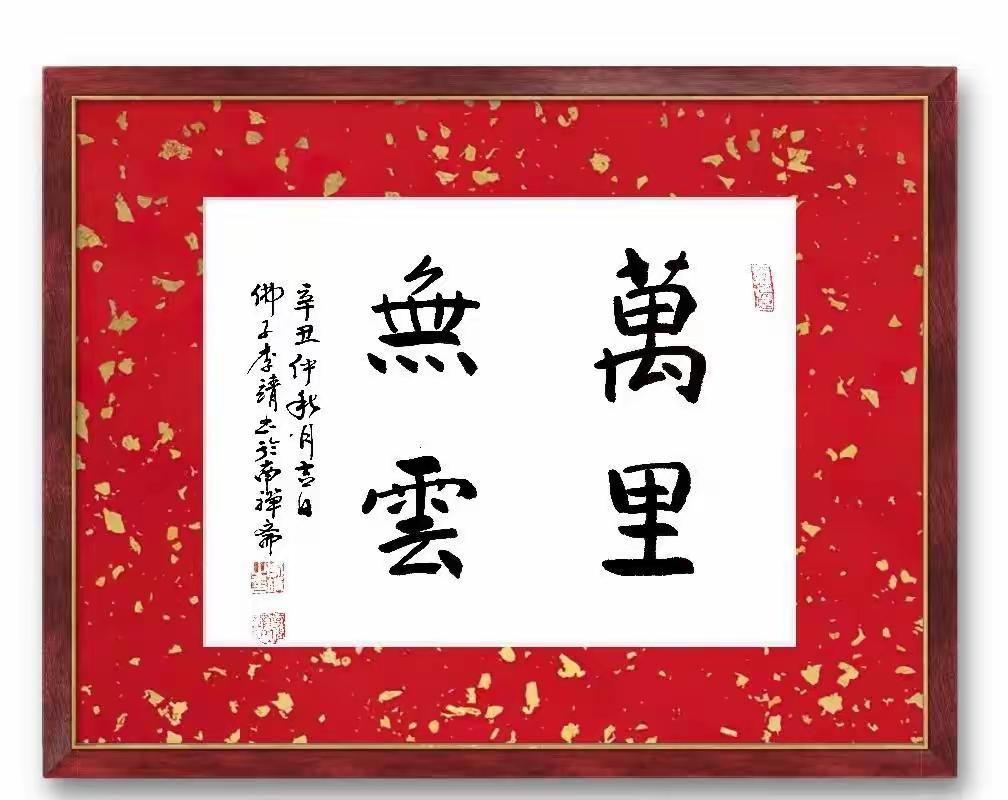 萬里
無雲
辛丑仲秋月吉日
佛子李靖书於南禅斋